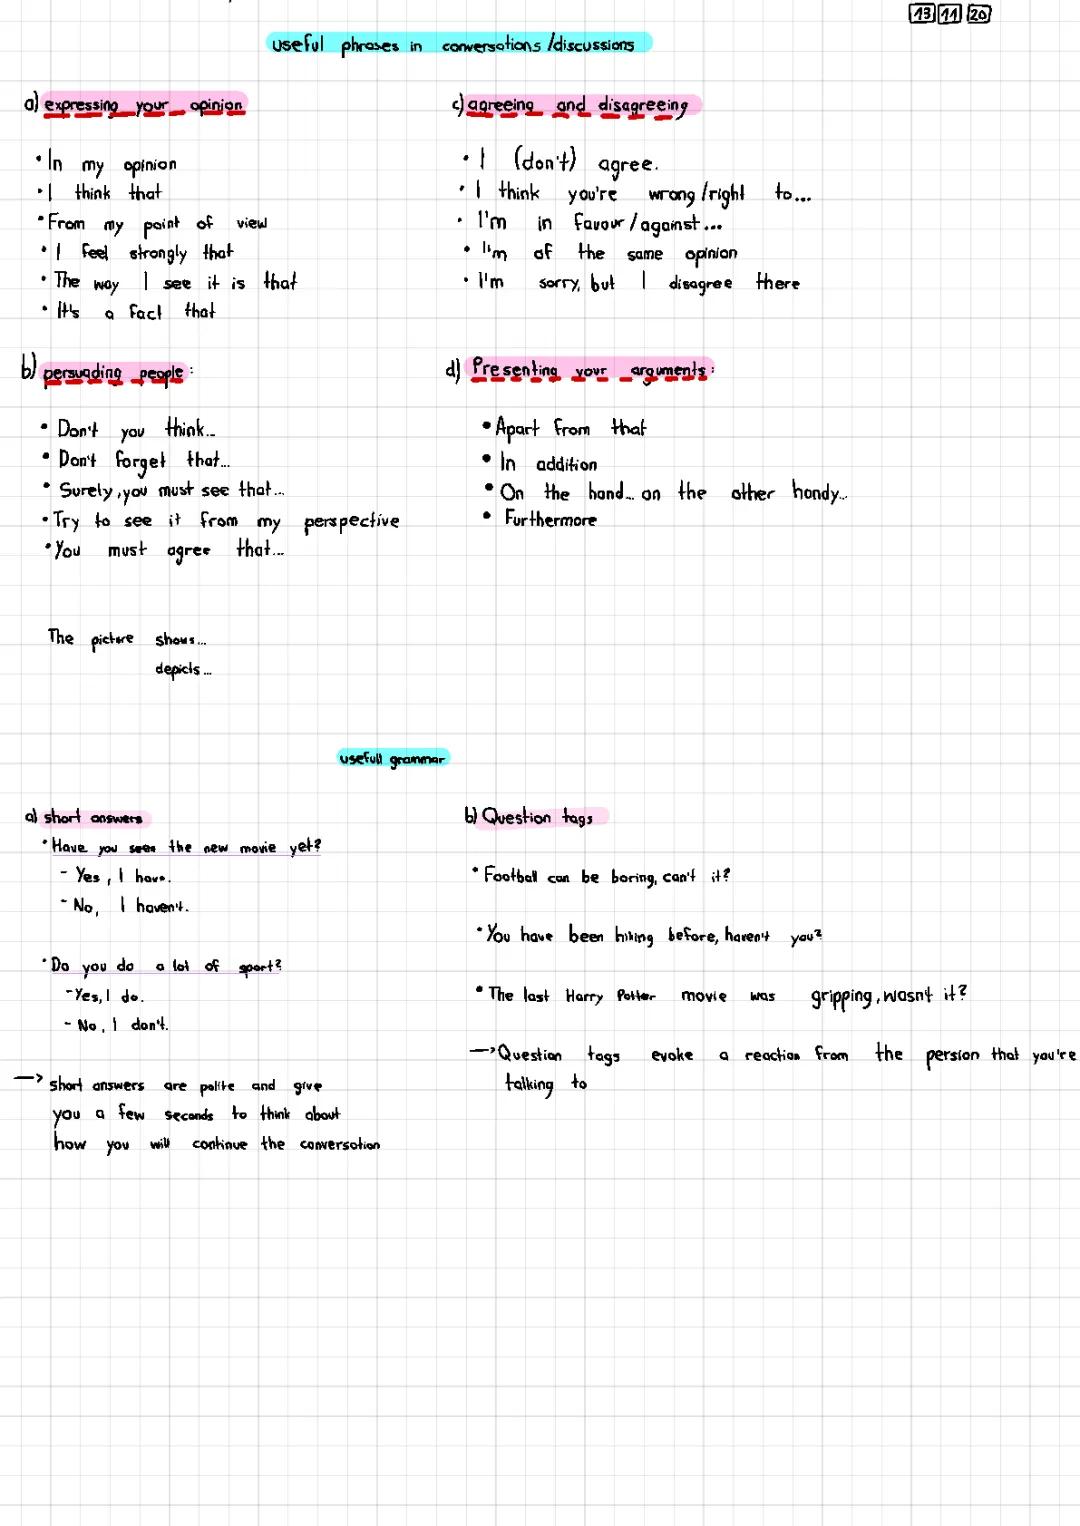 13 11 20
useful phrases in conversations/discussions
a) expressing your opinion
• In my opinion
• I think that
• From my point of view
• I feel strongly that
• The way I see it is that
• It's a fact that
c) agreeing and disagreeing
• I (don't) agree.
• I think you're wrong/right to...
• I'm in favour/against...
• I'm of the same opinion
• I'm sorry, but I disagree there
b) persuading people:
• Don't you think...
• Don't forget that...
• Surely, you must see that...
• Try to see it from my perspective
• You must agree that...
d) Presenting your arguments:
• Apart from that
• In addition
• On the hand... on the other handy...
• Furthermore
The picture shows...
depicts...
usefull grammar
a) short answers
• Have you seen the new movie yet?
- Yes, I have.
- No, I haven't.
• Do you do a lot of sport?
- Yes, I do.
- No, I don't.
→ short answers are polite and give
you a few seconds to think about
how you will continue the conversation
b) Question tags
• Football can be boring, can't it?
• You have been hiking before, haven't you?
• The last Harry Potter movie was gripping, wasn't it?
→ Question tags evoke a reaction from the persion that you're
talking to